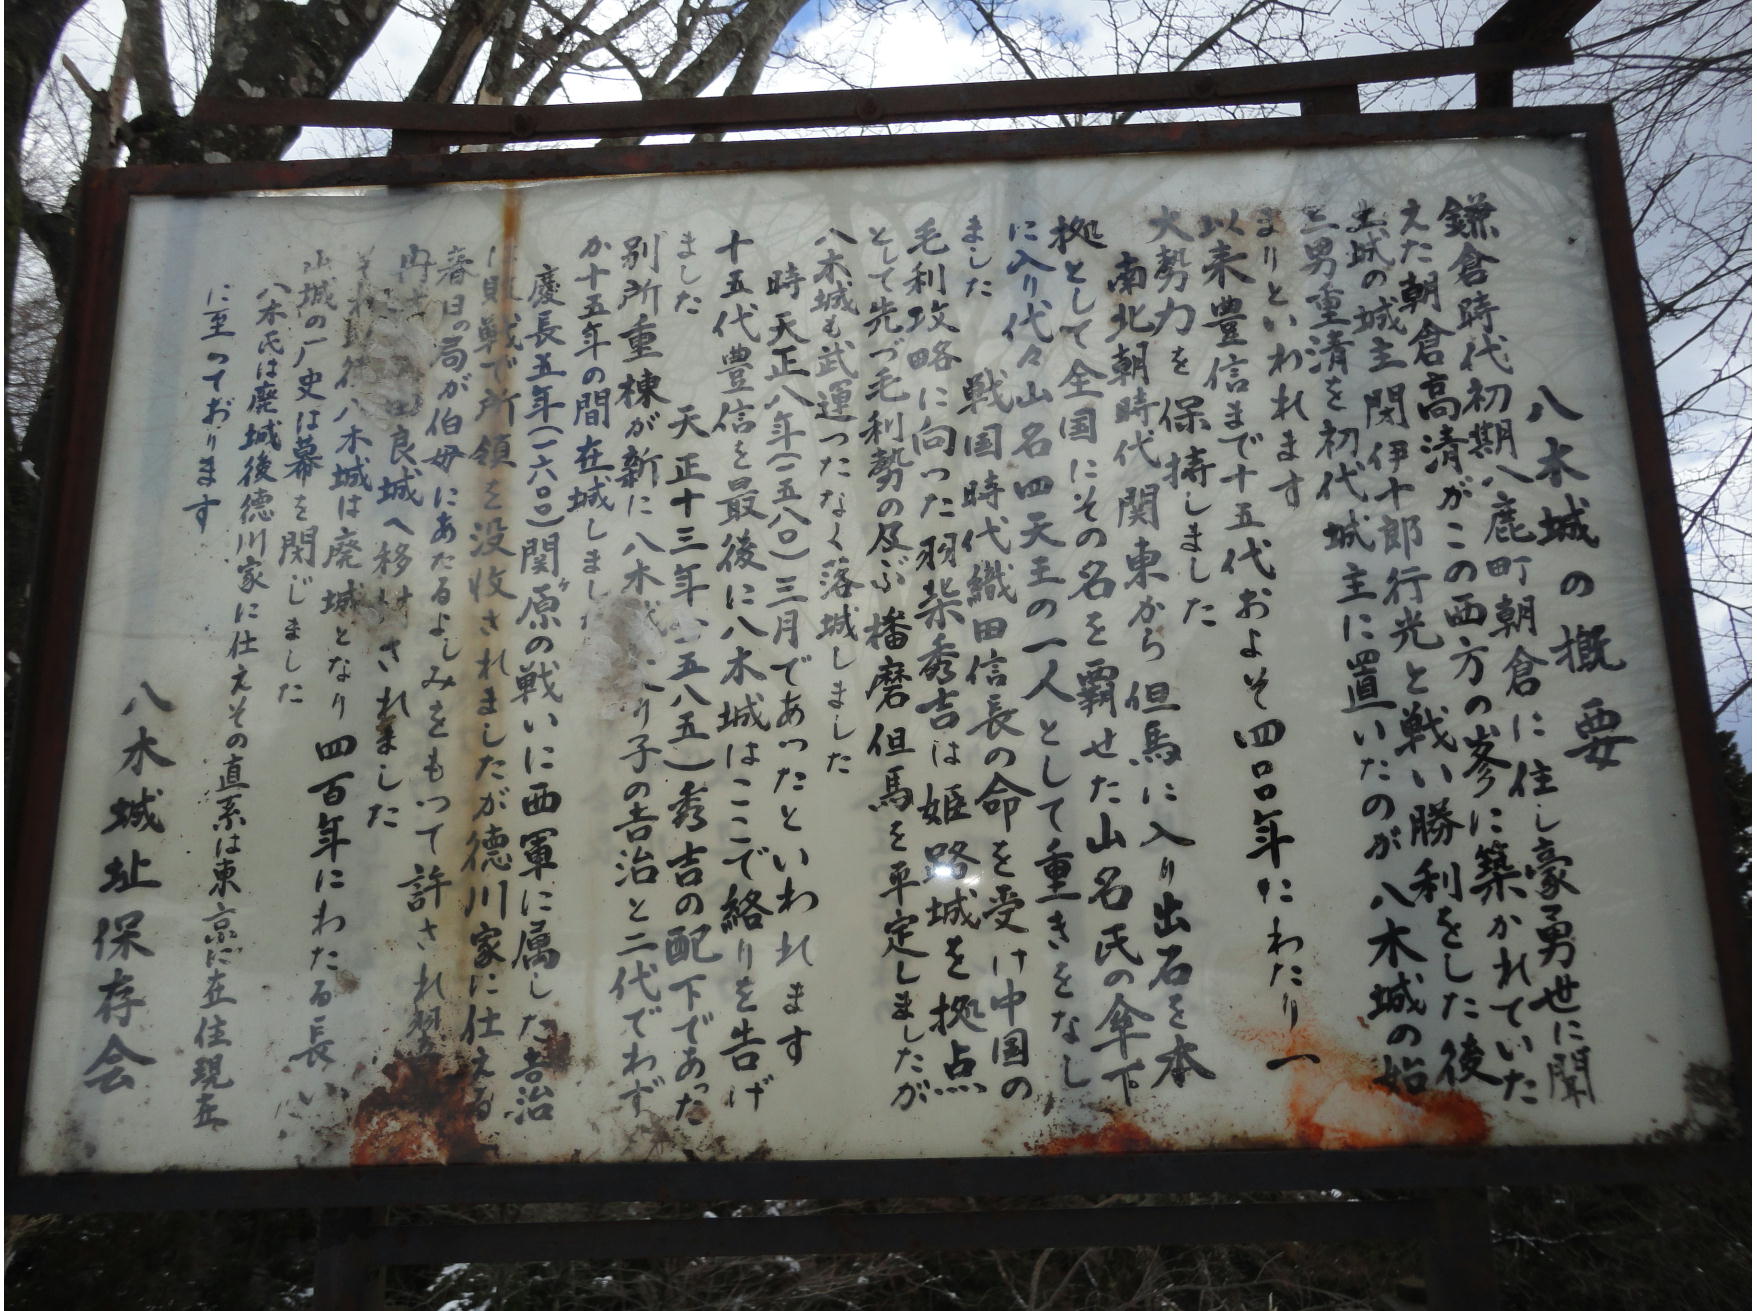 八木城の概要
鎌倉時代初期八鹿町朝倉に住し豪勇世に聞
えた朝倉高清がこの西方の峯に築かれていた
土城の城主閉伊十郎行光と戦い勝利をした後
三男重清を初代城主に置いたのが八木城の始
まりといわれます
以来豊信まで十五代およそ四〇〇年にわたり一
大勢力を保持しました
南北朝時代関東から但馬に入り出石を本
拠として全国にその名を覇せた山名氏の傘下
に入り代々山名四天王の一人として重きをなし
ました
戦国時代織田信長の命を受け中国の
毛利攻略に向った羽柴秀吉は姫路城を拠点
として先づ毛利勢の及ぶ播磨但馬を平定しましたが
八木城も武運つたなく落城しました
時天正八年(一五八〇)三月であったといわれます
十五代豊信を最後に八木城はここで終りを告げ
ました
天正十三年(一五八五)秀吉の配下であった
別所重棟が新に八木城り子の吉治と二代でわず
か十五年の間在城しました
慶長五年(一六〇〇)関ヶ原の戦いに西軍に属した吉治
は敗戦で所領を没収されましたが徳川家に仕える
春日の局が伯母にあたるよしみをもって許され翌
丹良城へ移封されました
それ以後八木城は廃城となり四百年にわたる長い
山城の歴史は幕を閉じました
八木氏は廃城後徳川家に仕えその直系は東京に在住現在
に至っております
八木城址保存会